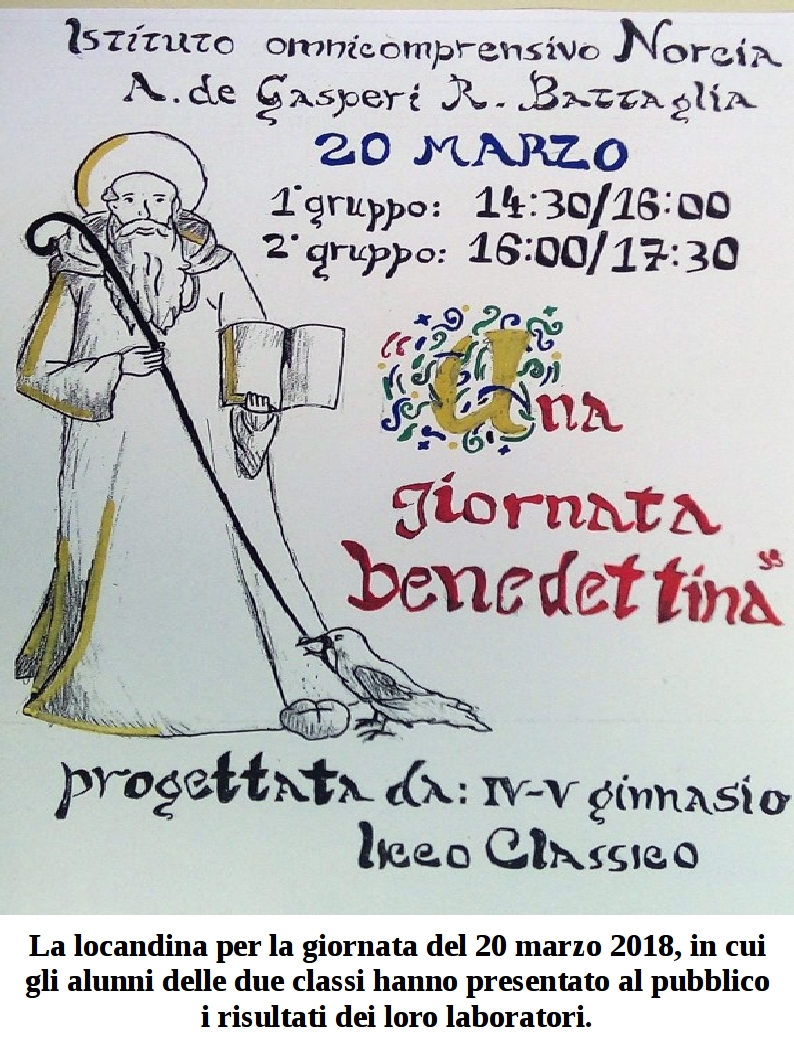 Istituto omnicomprensivo Norcia
A. de Gasperi R. Battaglia
20 MARZO
1° gruppo: 14:30/16:00
2° gruppo: 16:00/17:30
“Una
giornata
benedettina”
progettata da: IV-V ginnasio
liceo Classico
La locandina per la giornata del 20 marzo 2018, in cui
gli alunni delle due classi hanno presentato al pubblico
i risultati dei loro laboratori.